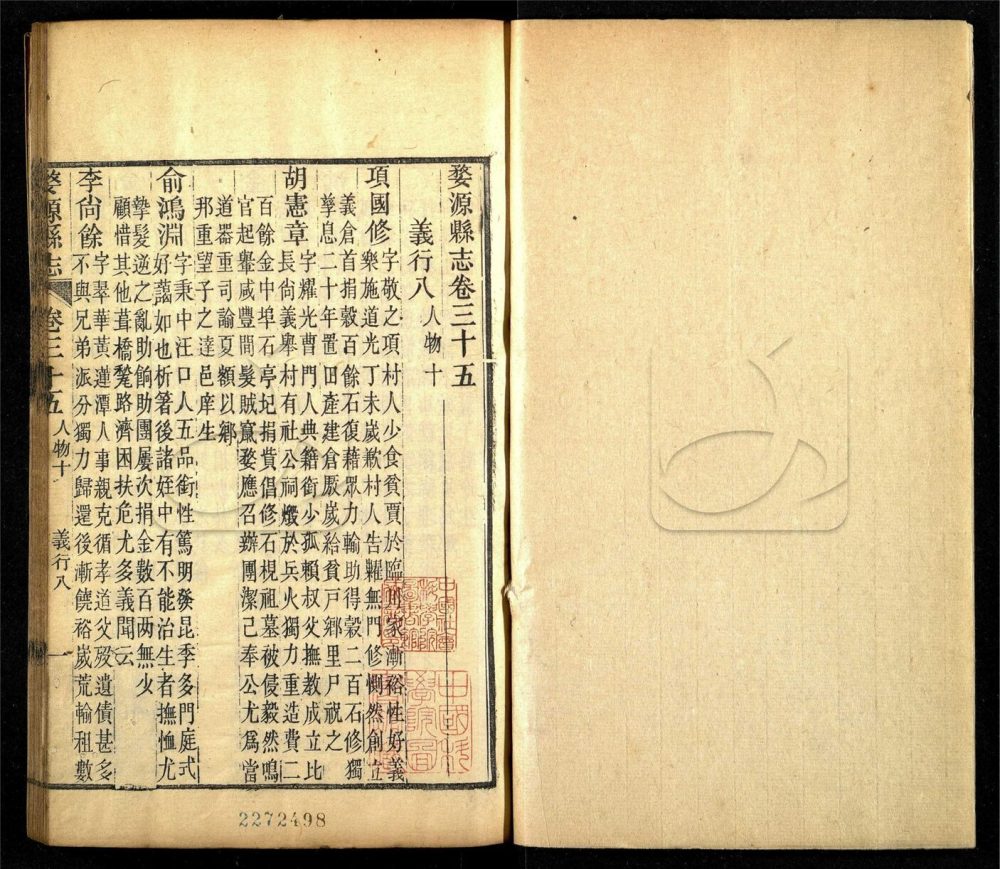 婺源縣志卷三十五
義行八 人物十
項國修 字敬之項村人少食貧賈於臨川家漸裕性好義
樂施道光丁未歲歉村人告糶無門修惻然創立
義倉首捐穀百餘石復藉眾力輸助得穀二百石修獨
孳息二十年置田產建倉厫歲給貧戶鄉里尸祝之
胡憲章 字耀光曹門人典籍銜少孤賴叔父撫教成立比
長尚義舉村有社公祠燬於兵火獨力重造費二
百餘金中埠石亭圮捐貲倡修石枧祖墓被侵毅然鳴
官起轝咸豐間髮賊竄婺應召辦團潔己奉公尤爲當
道器重司諭夏額以鄉
邦重望子之達邑庠生
俞鴻淵 字秉中汪口人五品銜性篤明發昆季多門庭式
好藹如也析箸後諸姪中有不能治生者撫恤尤
摯髮逆之亂助餉助團屢次捐金數百两無少
顧惜其他葺橋甃路濟困扶危尤多義聞云
李尚餘 字翠華黃蓮潭人事親克循孝道父歿遺債甚多
不與兄弟派分獨力歸還後漸饒裕歲荒輸租數
婺源縣志 卷三十五 人物十 義行八 一
2272498